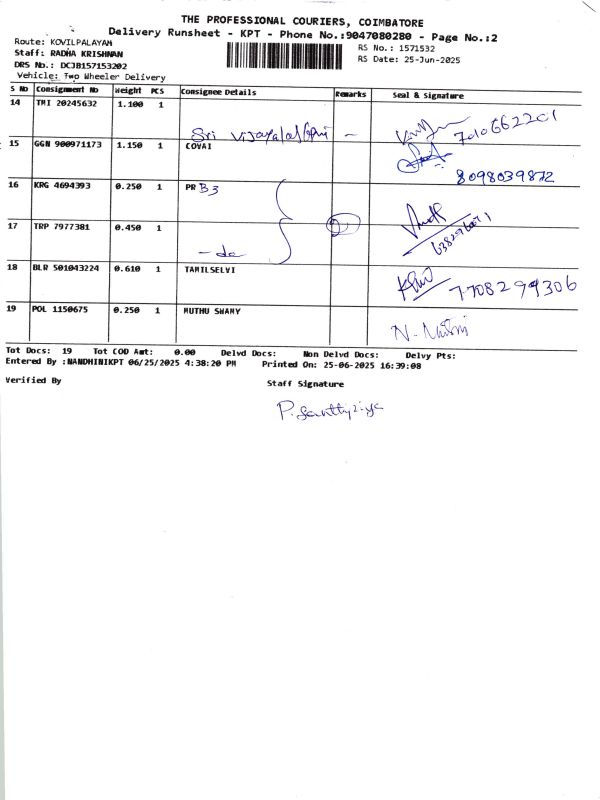 THE PROFESSIONAL COURIERS, COIMBATORE
Delivery Runsheet - KPT - Phone No.:9047080280 - Page No.:2
Route: KOVILPALAYAM
Staff: RADHA KRISHNAN
DRS No.: DCJB157153202
Vehicle: Two Wheeler Delivery
RS No.: 1571532
RS Date: 25-Jun-2025
S No Consignment No Weight PCS Consignee Details Remarks Seal & Signature
14 TMI 20245632 1.100 1 Sri Vijayalakshmi -
15 GGN 900971173 1.150 1 COVAI 8098039872
16 KRG 4694393 0.250 1 PR B3
17 TRP 7977381 0.450 1 - do
18 BLR 501043224 0.610 1 TAMILSELVI 7708299306
19 POL 1150675 0.250 1 MUTHU SWAMY N.
Tot Docs: 19 Tot COD Amt: 0.00 Delvd Docs: Non Delvd Docs: Delvy Pts:
Entered By :NANDHINIKPT 06/25/2025 4:38:20 PM Printed On: 25-06-2025 16:39:08
Verified By Staff Signature